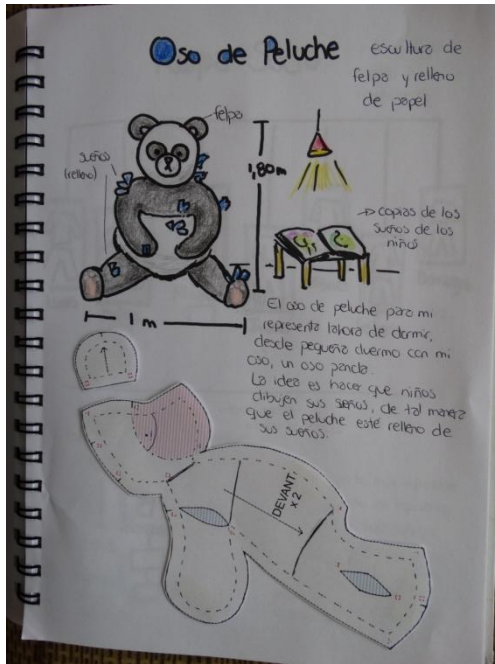 Oso de Peluche
escultura de
felpa y relleno
de papel
felpa
sueños
(relleno)
1,80m
1 m
→ copias de los
sueños de los
niños
El oso de peluche para mi
representa la hora de dormir,
desde pequeña duermo con mi
oso, un oso panda.
La idea es hacer que niños
dibujen sus sueños, de tal manera
que el peluche esté relleno de
sus sueños.
DEVANT
x 2